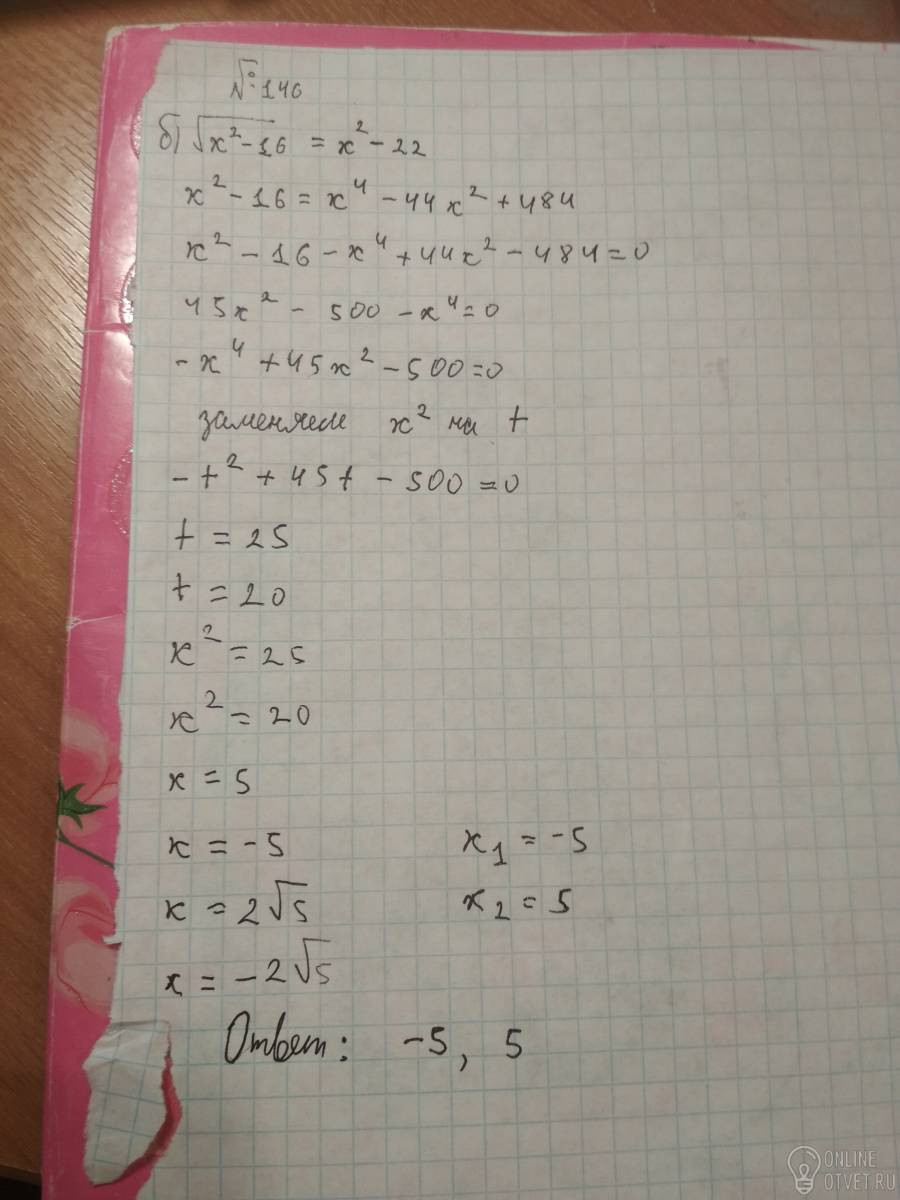 №146
б) √x²-16 = x² - 22
x² - 16 = x⁴ - 44x² + 484
x² - 16 - x⁴ + 44x² - 484 = 0
45x² - 500 - x⁴ = 0
-x⁴ + 45x² - 500 = 0
заменяем x² на t
-t² + 45t - 500 = 0
t = 25
t = 20
x² = 25
x² = 20
x = 5
x = -5
x₁ = -5
x = 2√5
x₂ = 5
x = -2√5
Ответ: -5, 5
ONLINE
OTVET.RU